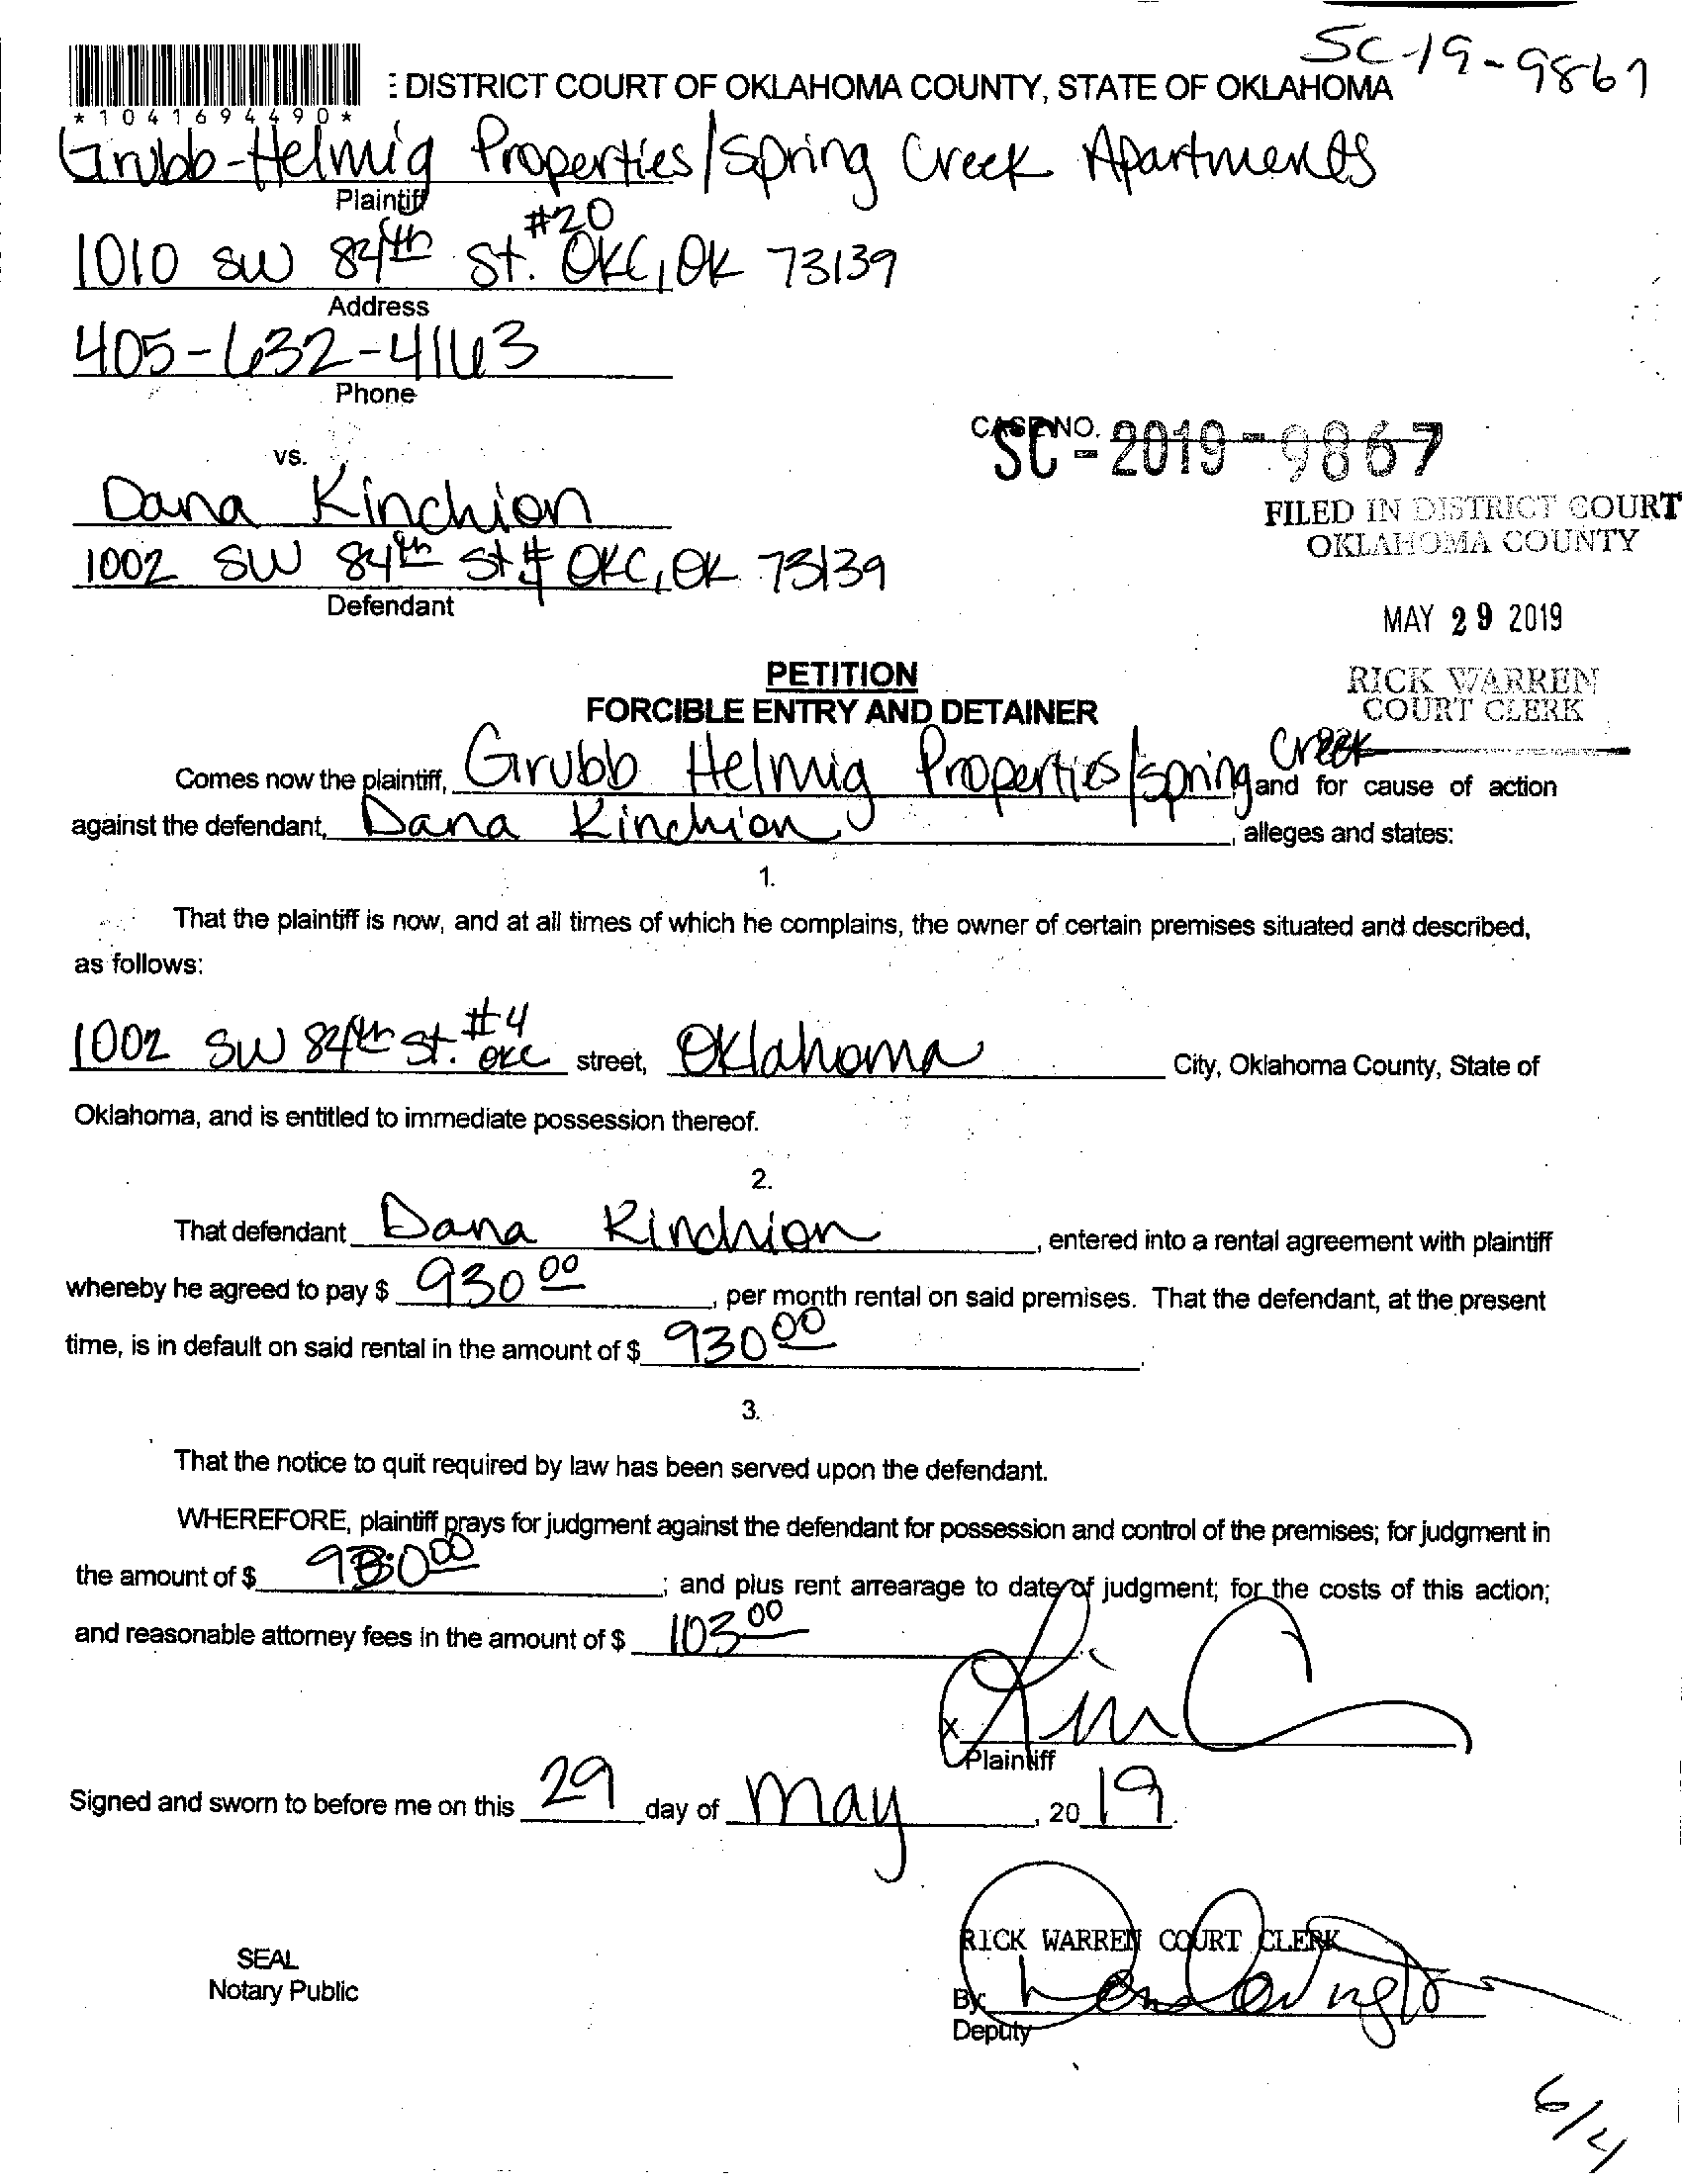 SC-19-9867
: DISTRICT COURT OF OKLAHOMA COUNTY, STATE OF OKLAHOMA
*1041694490*
Grubb-Helmig Properties/Spring Creek Apartments
Plaintiff
1010 SW 84th St. #20 OKC, OK 73139
Address
405-632-4163
Phone
CASE NO.
SC-2019-9867
vs.
Dana Kinchion
FILED IN DISTRICT COURT
OKLAHOMA COUNTY
1002 SW 84th St # OKC, OK 73139
Defendant
MAY 29 2019
PETITION
RICK WARREN
FORCIBLE ENTRY AND DETAINER
COURT CLERK
Comes now the plaintiff, Grubb Helmig Properties/Spring Creek and for cause of action
against the defendant, Dana Kinchion, alleges and states:
1.
That the plaintiff is now, and at all times of which he complains, the owner of certain premises situated and described,
as follows:
1002 SW 84th St. #4 OKC street, Oklahoma City, Oklahoma County, State of
Oklahoma, and is entitled to immediate possession thereof.
2.
That defendant Dana Kinchion, entered into a rental agreement with plaintiff
whereby he agreed to pay $ 930 00, per month rental on said premises. That the defendant, at the present
time, is in default on said rental in the amount of $ 930 00.
3.
That the notice to quit required by law has been served upon the defendant.
WHEREFORE, plaintiff prays for judgment against the defendant for possession and control of the premises; for judgment in
the amount of $ 930 00; and plus rent arrearage to date of judgment; for the costs of this action;
and reasonable attorney fees in the amount of $ 103 00
X
Plaintiff
Signed and sworn to before me on this 29 day of May, 20 19.
RICK WARREN COURT CLERK
SEAL
Notary Public
By
Deputy
6/4